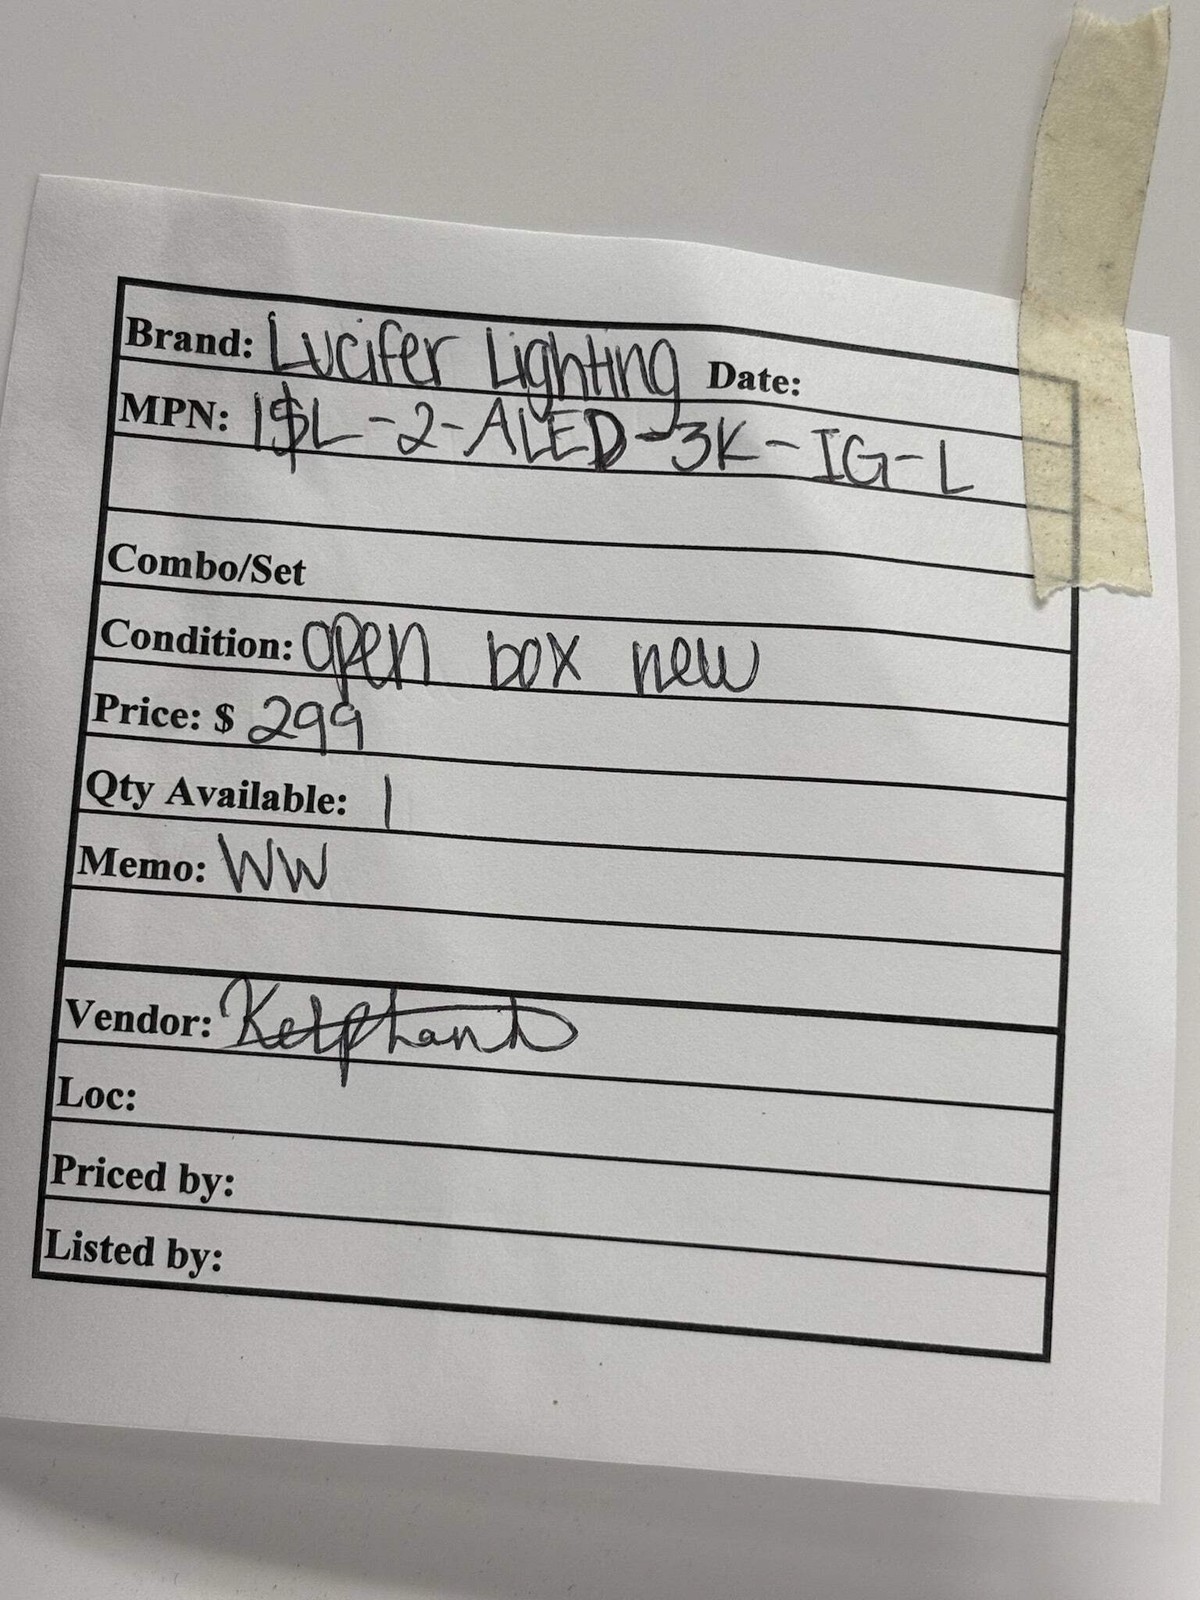 Brand: Lucifer Lighting Date:
MPN: 1$L-2-ALED-3K-IG-L
Combo/Set
Condition: open box new
Price: $ 299
Qty Available: 1
Memo: WW
Vendor:
Loc:
Priced by:
Listed by: